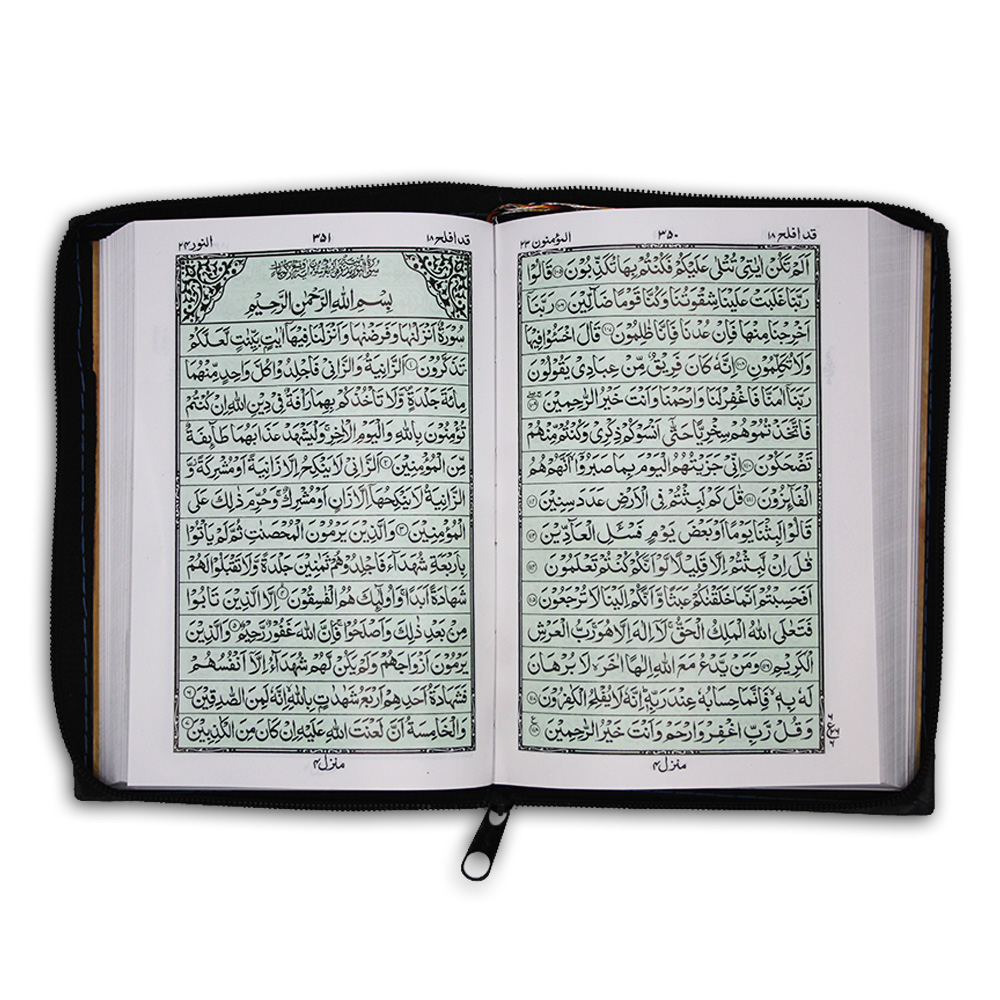 قد افلح ١٨
٣٥٠
المؤمنون ٢٣
اَلَمْ تَكُنْ اٰيٰتِيْ تُتْلٰى عَلَيْكُمْ فَكُنْتُمْ بِهَا تُكَذِّبُوْنَ ۝١٠٥ قَالُوْا
رَبَّنَا غَلَبَتْ عَلَيْنَا شِقْوَتُنَا وَكُنَّا قَوْمًا ضَآلِّيْنَ ۝١٠٦ رَبَّنَآ
اَخْرِجْنَا مِنْهَا فَاِنْ عُدْنَا فَاِنَّا ظٰلِمُوْنَ ۝١٠٧ قَالَ اخْسَـُٔوْا فِيْهَا
وَلَا تُكَلِّمُوْنِ ۝١٠٨ اِنَّهٗ كَانَ فَرِيْقٌ مِّنْ عِبَادِيْ يَقُوْلُوْنَ
رَبَّنَآ اٰمَنَّا فَاغْفِرْ لَنَا وَارْحَمْنَا وَاَنْتَ خَيْرُ الرّٰحِمِيْنَ ۝١٠٩
فَاتَّخَذْتُمُوْهُمْ سِخْرِيًّا حَتّٰٓى اَنْسَوْكُمْ ذِكْرِيْ وَكُنْتُمْ مِّنْهُمْ
تَضْحَكُوْنَ ۝١١٠ اِنِّيْ جَزَيْتُهُمُ الْيَوْمَ بِمَا صَبَرُوْٓا اَنَّهُمْ هُمُ
الْفَآئِزُوْنَ ۝١١١ قٰلَ كَمْ لَبِثْتُمْ فِي الْاَرْضِ عَدَدَ سِنِيْنَ ۝١١٢
قَالُوْا لَبِثْنَا يَوْمًا اَوْ بَعْضَ يَوْمٍ فَسْـَٔلِ الْعَآدِّيْنَ ۝١١٣
قٰلَ اِنْ لَّبِثْتُمْ اِلَّا قَلِيْلًا لَّوْ اَنَّكُمْ كُنْتُمْ تَعْلَمُوْنَ ۝١١٤
اَفَحَسِبْتُمْ اَنَّمَا خَلَقْنٰكُمْ عَبَثًا وَّاَنَّكُمْ اِلَيْنَا لَا تُرْجَعُوْنَ ۝١١٥
فَتَعٰلَى اللّٰهُ الْمَلِكُ الْحَقُّ ۚ لَآ اِلٰهَ اِلَّا هُوَ ۚ رَبُّ الْعَرْشِ
الْكَرِيْمِ ۝١١٦ وَمَنْ يَّدْعُ مَعَ اللّٰهِ اِلٰهًا اٰخَرَ ۙ لَا بُرْهَانَ
لَهٗ بِهٖ ۙ فَاِنَّمَا حِسَابُهٗ عِنْدَ رَبِّهٖ ؕ اِنَّهٗ لَا يُفْلِحُ الْكٰفِرُوْنَ ۝١١٧
وَقُلْ رَّبِّ اغْفِرْ وَارْحَمْ وَاَنْتَ خَيْرُ الرّٰحِمِيْنَ ۝١١٨
منزل ۴
٣٥١
النور ٢٤
بِسْمِ اللّٰهِ الرَّحْمٰنِ الرَّحِيْمِ
سُوْرَةٌ اَنْزَلْنٰهَا وَفَرَضْنٰهَا وَاَنْزَلْنَا فِيْهَآ اٰيٰتٍۭ بَيِّنٰتٍ لَّعَلَّكُمْ
تَذَكَّرُوْنَ ۝١ اَلزَّانِيَةُ وَالزَّانِيْ فَاجْلِدُوْا كُلَّ وَاحِدٍ مِّنْهُمَا
مِائَةَ جَلْدَةٍ ۪ وَّلَا تَاْخُذْكُمْ بِهِمَا رَاْفَةٌ فِيْ دِيْنِ اللّٰهِ اِنْ كُنْتُمْ
تُؤْمِنُوْنَ بِاللّٰهِ وَالْيَوْمِ الْاٰخِرِ ۚ وَلْيَشْهَدْ عَذَابَهُمَا طَآئِفَةٌ
مِّنَ الْمُؤْمِنِيْنَ ۝٢ اَلزَّانِيْ لَا يَنْكِحُ اِلَّا زَانِيَةً اَوْ مُشْرِكَةً ۫ وَّ
الزَّانِيَةُ لَا يَنْكِحُهَآ اِلَّا زَانٍ اَوْ مُشْرِكٌ ۚ وَحُرِّمَ ذٰلِكَ عَلَى
الْمُؤْمِنِيْنَ ۝٣ وَالَّذِيْنَ يَرْمُوْنَ الْمُحْصَنٰتِ ثُمَّ لَمْ يَاْتُوْا
بِاَرْبَعَةِ شُهَدَآءَ فَاجْلِدُوْهُمْ ثَمٰنِيْنَ جَلْدَةً وَّلَا تَقْبَلُوْا لَهُمْ
شَهَادَةً اَبَدًا ۚ وَاُولٰٓئِكَ هُمُ الْفٰسِقُوْنَ ۝٤ اِلَّا الَّذِيْنَ تَابُوْا
مِنْۢ بَعْدِ ذٰلِكَ وَاَصْلَحُوْا ۚ فَاِنَّ اللّٰهَ غَفُوْرٌ رَّحِيْمٌ ۝٥ وَالَّذِيْنَ
يَرْمُوْنَ اَزْوَاجَهُمْ وَلَمْ يَكُنْ لَّهُمْ شُهَدَآءُ اِلَّآ اَنْفُسُهُمْ
فَشَهَادَةُ اَحَدِهِمْ اَرْبَعُ شَهٰدٰتٍۭ بِاللّٰهِ ۙ اِنَّهٗ لَمِنَ الصّٰدِقِيْنَ ۝٦
وَالْخَامِسَةُ اَنَّ لَعْنَتَ اللّٰهِ عَلَيْهِ اِنْ كَانَ مِنَ الْكٰذِبِيْنَ ۝٧
منزل ۴